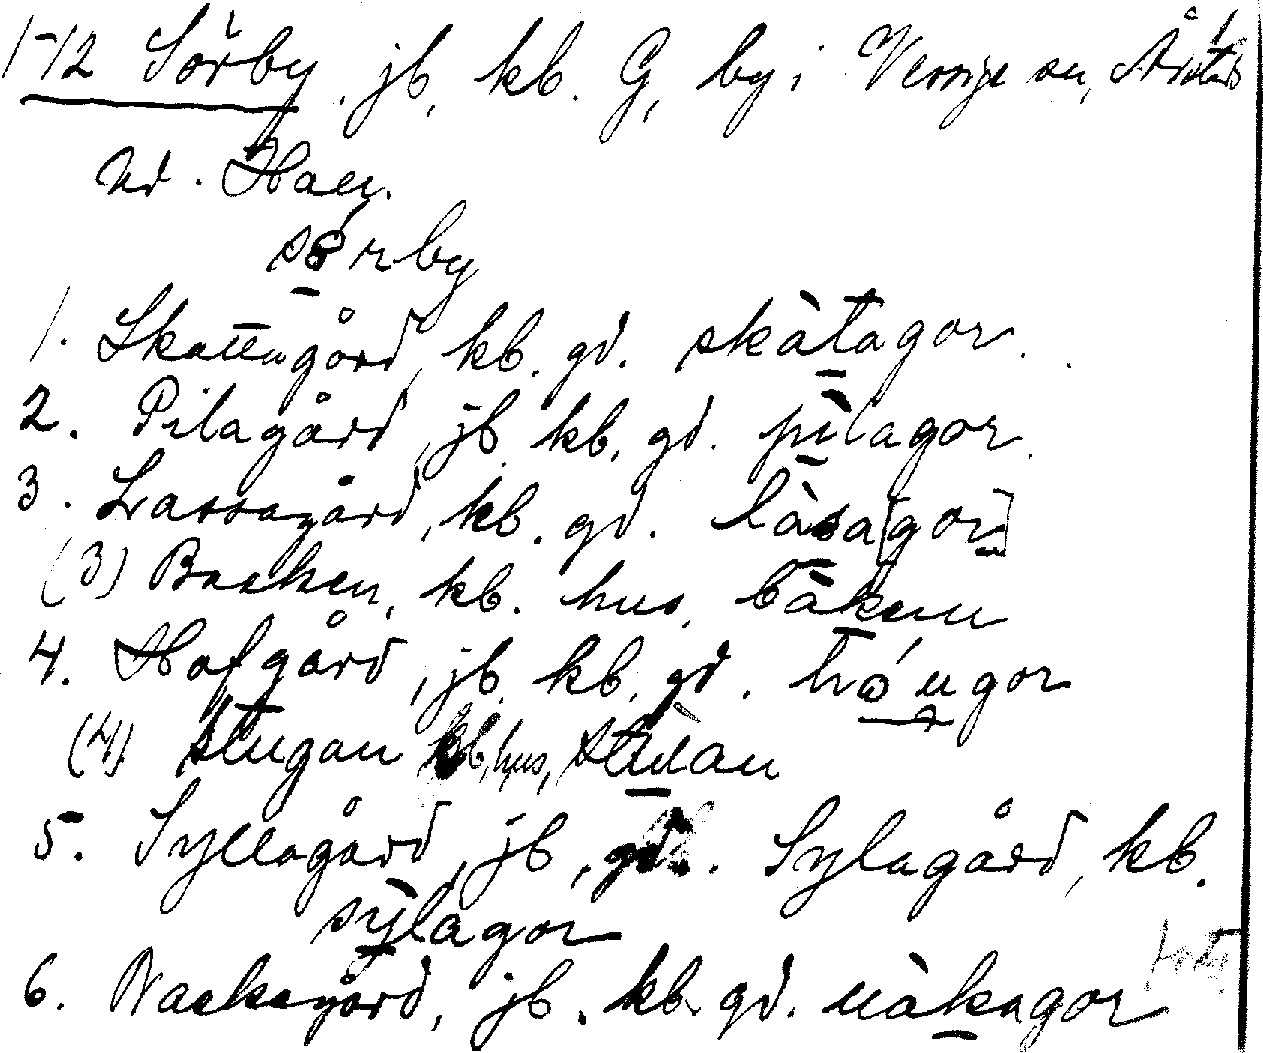 1-12 Sörby, jb, kb. G, by i Vessige sn, Årstads
hd. Hall.
sǿrby
1. Skattagård, kb. gd. skàtagor.
2. Pilagård, jb, kb, gd. pìlagor.
3. Lassagård, kb. gd. làsa[gor]
(3) Backen, kb. hus, bàken
4. Hofgård, jb, kb, gd. hóugor
(4) Stugan kb, hus,
5. Syllagård, jb, gd. Sylagård, kb.
sỳlagor
6. Nackagård, jb. kb. gd. nàkagor